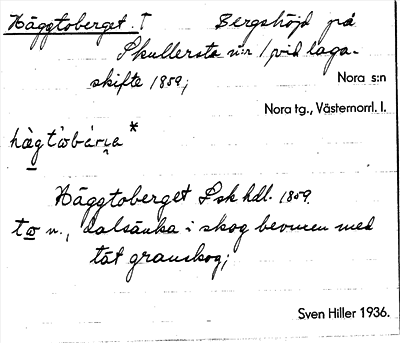 Häggtoberget. T Bergshöjd på
Skullersta n:r 1 (vid laga-
skifte 1859;
Nora s:n
Nora tg., Västernorrl. l.
Häggtoberget Lsk hdl. 1859.
n., dalsänka i skog bevuxen med
tät granskog;
Sven Hiller 1936.